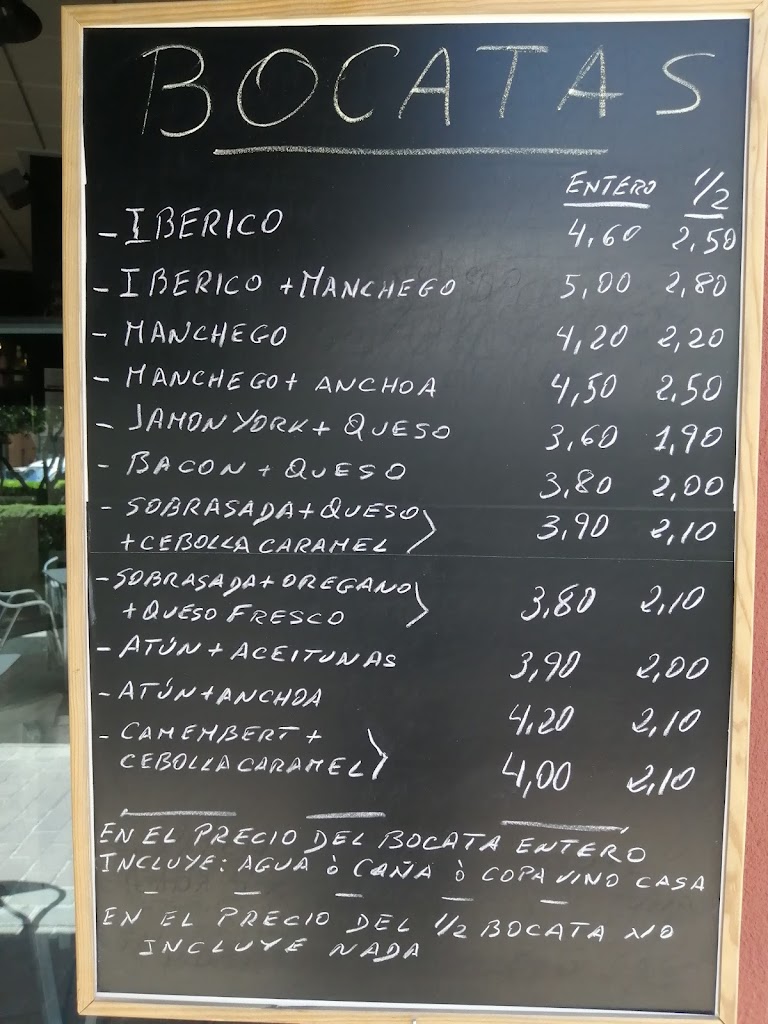 BOCATAS
ENTERO 1/2
- IBERICO 4,60 2,50
- IBERICO + MANCHEGO 5,00 2,80
- MANCHEGO 4,20 2,20
- MANCHEGO + ANCHOA 4,50 2,50
- JAMON YORK + QUESO 3,60 1,90
- BACON + QUESO 3,80 2,00
- SOBRASADA + QUESO
+ CEBOLLA CARAMEL 3,90 2,10
- SOBRASADA + OREGANO
+ QUESO FRESCO 3,80 2,10
- ATÚN + ACEITUNAS 3,90 2,00
- ATÚN + ANCHOA 4,20 2,10
- CAMEMBERT +
CEBOLLA CARAMEL 4,00 2,10
EN EL PRECIO DEL BOCATA ENTERO
INCLUYE: AGUA ò CAÑA ò COPA VINO CASA
EN EL PRECIO DEL 1/2 BOCATA NO
INCLUYE NADA